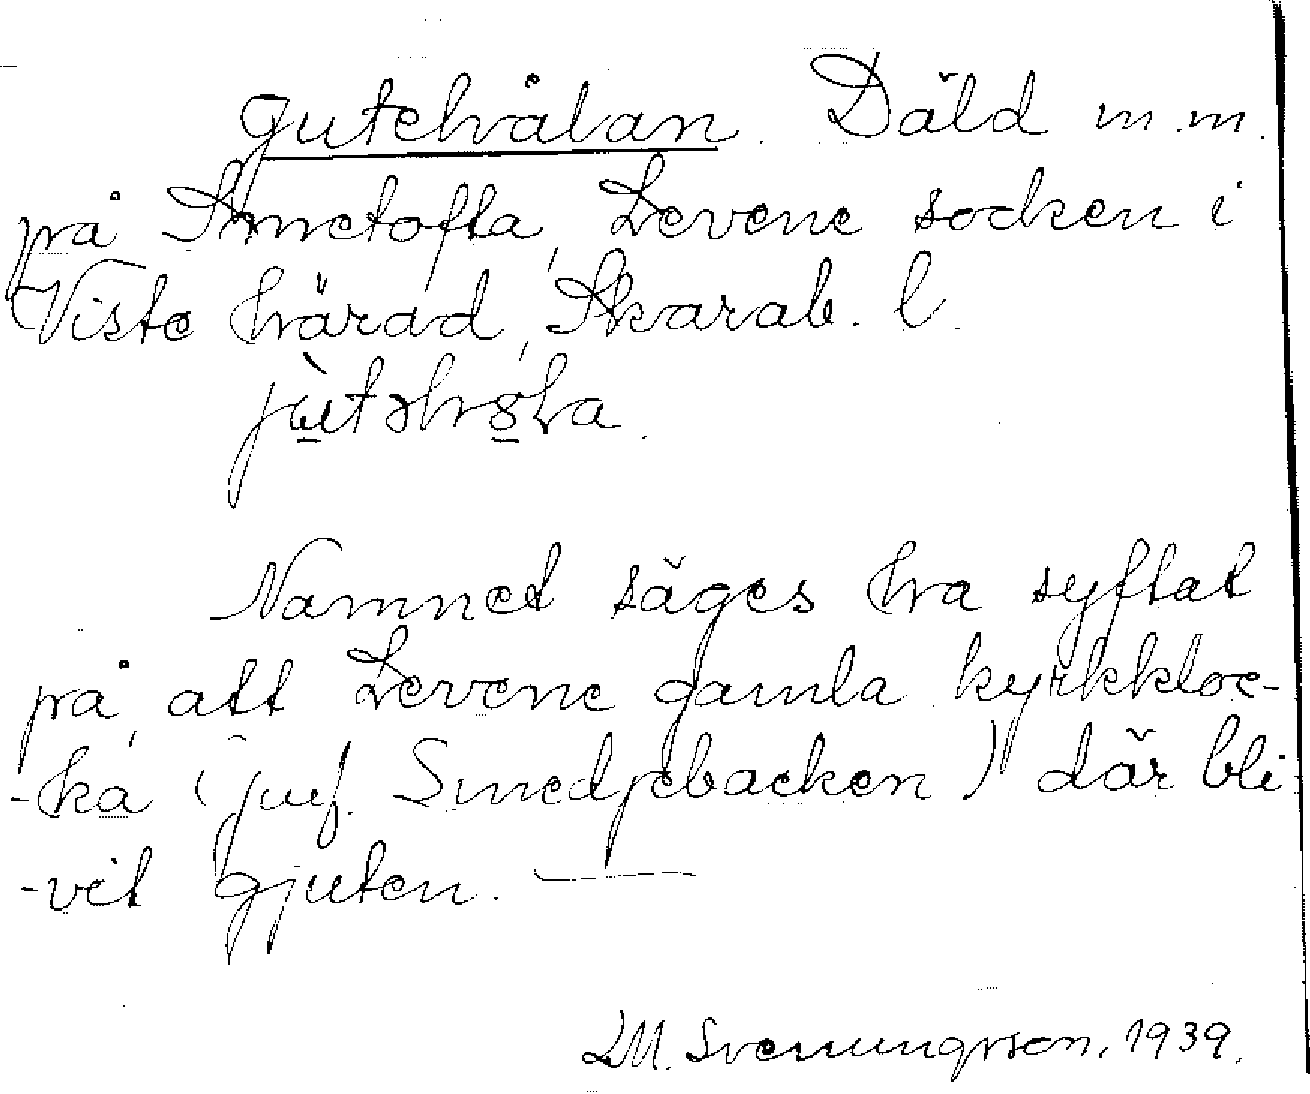 gutehålan. Däld m.m.
på Smetofta, Levene socken i
Viste härad, Skarab. l.
jùtəhola.
Namnet säges ha syftat
på, att Levene gamla kyrkkloc-
-ka (jmf. Smedjebacken) där bli-
-vit gjuten. —
LM. Svenungsson, 1939.